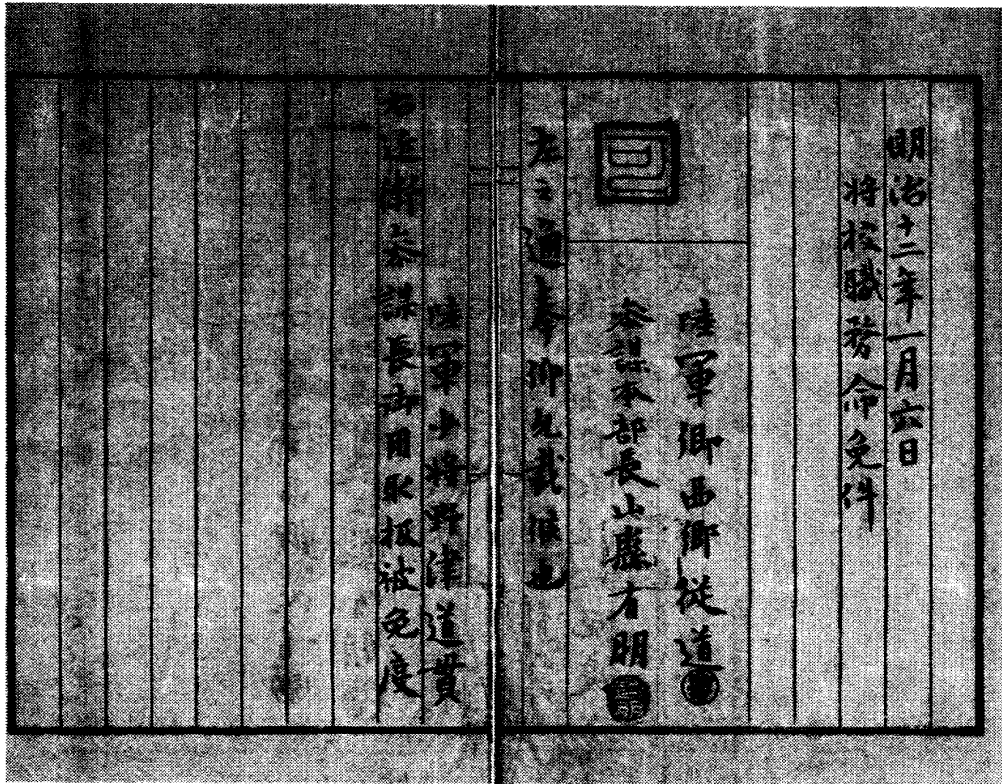 明治十二年一月六日
将校職務命免件
陸軍卿西郷従道
参謀本部長山縣有朋
左之通奉仰允裁候也
陸軍少将野津道貫
右近衛参謀長御用取扱被免度